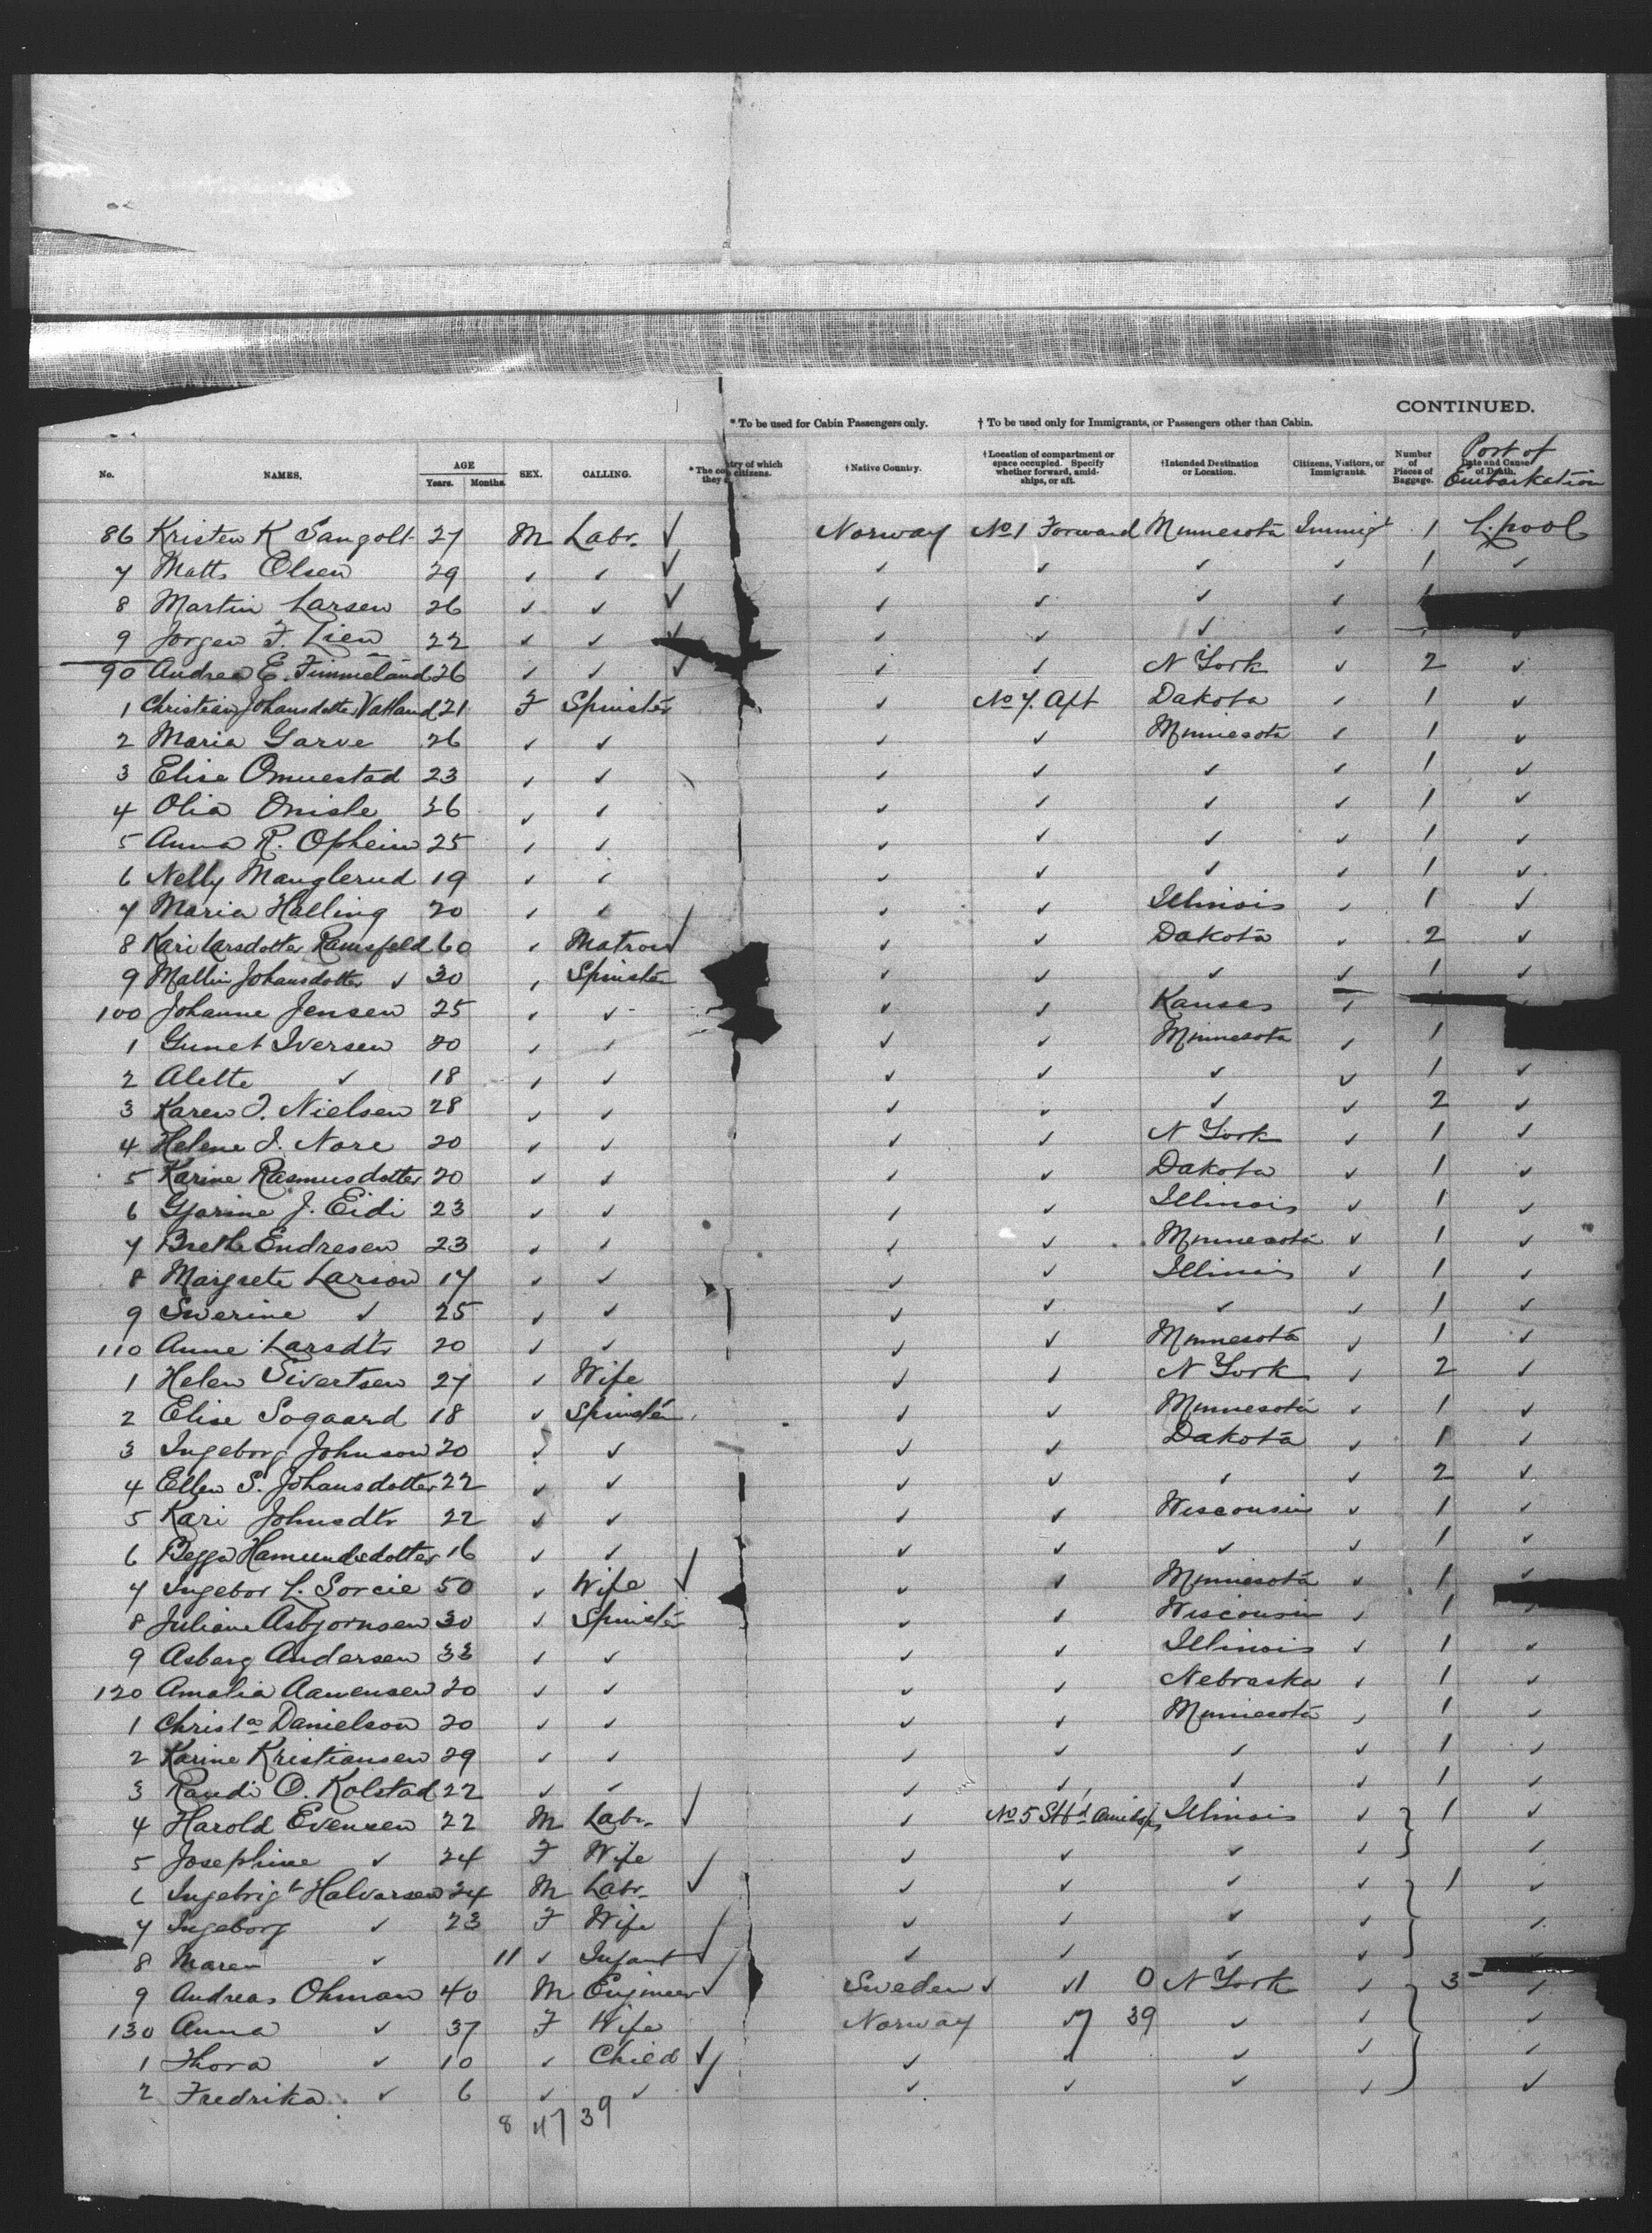 CONTINUED.
* To be used for Cabin Passengers only. † To be used only for Immigrants, or Passengers other than Cabin.
No. NAMES. AGE Years. Months. SEX. CALLING. * The country of which they citizens. † Native Country. † Location of compartment or space occupied. Specify whether forward, amidships, or aft. † Intended Destination or Location. Citizens, Visitors, or Immigrants. Number of Pieces of Baggage. Date and Cause of Death. Port of Embarkation
86 Kristen K Sangolt 27 M Labr. ✓ Norway No 1 Forward Minnesota Immigt 1 L.pool
7 Matts Olsen 29 ✓ ✓ ✓ ✓ ✓ ✓ ✓ 1 ✓
8 Martin Larsen 26 ✓ ✓ ✓ ✓ ✓ ✓ ✓ 1
9 Jorgen F. Lien 22 ✓ ✓ ✓ ✓ ✓ ✓ ✓ ✓
90 Andrea E. Fimmeland 26 ✓ ✓ ✓ ✓ ✓ N York ✓ 2 ✓
1 Christian Johansdotter Vatland 21 F Spinster ✓ No 7. Aft Dakota ✓ 1 ✓
2 Maria Garve 26 ✓ ✓ ✓ ✓ Minnesota ✓ 1 ✓
3 Elise Omuestad 23 ✓ ✓ ✓ ✓ ✓ ✓ 1 ✓
4 Olia Onisle 26 ✓ ✓ ✓ ✓ ✓ ✓ 1 ✓
5 Anna R. Opheim 25 ✓ ✓ ✓ ✓ ✓ ✓ 1 ✓
6 Nelly Manglerud 19 ✓ ✓ ✓ ✓ ✓ ✓ 1 ✓
7 Maria Halling 20 ✓ ✓ ✓ ✓ Illinois ✓ 1 ✓
8 Kari Larsdotter Ramsfeld 60 ✓ Matron ✓ ✓ ✓ Dakota ✓ 2 ✓
9 Mallin Johansdotter ✓ 30 ✓ Spinster ✓ ✓ ✓ ✓ 1 ✓
100 Johanne Jensen 25 ✓ ✓ ✓ ✓ Kansas ✓
1 Gunet Iversen 20 ✓ ✓ ✓ ✓ Minnesota ✓ 1
2 Alette ✓ 18 ✓ ✓ ✓ ✓ ✓ ✓ 1 ✓
3 Karen J. Nielsen 28 ✓ ✓ ✓ ✓ ✓ ✓ 2 ✓
4 Helene J. Nore 20 ✓ ✓ ✓ ✓ N York ✓ 1 ✓
5 Karine Rasmusdotter 20 ✓ ✓ ✓ ✓ Dakota ✓ 1 ✓
6 Gjorine J. Eidi 23 ✓ ✓ ✓ ✓ Illinois ✓ 1 ✓
7 Brethe Endresen 23 ✓ ✓ ✓ ✓ Minnesota ✓ 1 ✓
8 Margrete Larson 17 ✓ ✓ ✓ ✓ Illinois ✓ 1 ✓
9 Swerine ✓ 25 ✓ ✓ ✓ ✓ ✓ ✓ 1 ✓
110 Anne Larsdtr 20 ✓ ✓ ✓ ✓ Minnesota ✓ 1 ✓
1 Helen Sivertsen 27 ✓ Wife ✓ ✓ N York ✓ 2 ✓
2 Elise Sogaard 18 ✓ Spinster ✓ ✓ Minnesota ✓ 1 ✓
3 Ingeborg Johnson 20 ✓ ✓ ✓ ✓ Dakota ✓ 1 ✓
4 Ellen S. Johansdotter 22 ✓ ✓ ✓ ✓ ✓ ✓ 2 ✓
5 Kari Johnsdtr 22 ✓ ✓ ✓ ✓ Wisconsin ✓ 1 ✓
6 Begga Hamundsdotter 16 ✓ ✓ ✓ ✓ ✓ ✓ 1 ✓
7 Ingebor L. Sorcie 50 ✓ Wife ✓ ✓ ✓ Minnesota ✓ 1 ✓
8 Juliane Asbjornsen 30 ✓ Spinster ✓ ✓ Wisconsin ✓ 1 ✓
9 Asberg Andersen 33 ✓ ✓ ✓ ✓ Illinois ✓ 1 ✓
120 Amalia Aanensen 20 ✓ ✓ ✓ ✓ Nebraska ✓ 1 ✓
1 Christa Danielson 20 ✓ ✓ ✓ ✓ Minnesota ✓ 1 ✓
2 Karine Kristiansen 29 ✓ ✓ ✓ ✓ ✓ ✓ 1 ✓
3 Randi O. Kolstad 22 ✓ ✓ ✓ ✓ ✓ ✓ 1 ✓
4 Harold Evensen 22 M Labr. ✓ ✓ No 5 Stbd Amidsps Illinois ✓ 1 ✓
5 Josephine ✓ 24 F Wife ✓ ✓ ✓ ✓ ✓
6 Ingebrigt Halvorsen 24 M Labr. ✓ ✓ ✓ ✓ ✓ 1 ✓
7 Ingeborg ✓ 23 F Wife ✓ ✓ ✓ ✓ ✓
8 Maren ✓ 11 ✓ Infant ✓ ✓ ✓ ✓ ✓ ✓
9 Andreas Ohman 40 M Engineer ✓ Sweden ✓ ✓1 0 N York ✓ 3 ✓
130 Anna ✓ 37 F Wife Norway 7 39 ✓ ✓ ✓
1 Thora ✓ 10 ✓ Child ✓ ✓ ✓ ✓ ✓ ✓
2 Fredrika ✓ 6 ✓ ✓ ✓ ✓ ✓ ✓ ✓ ✓
8 47 39